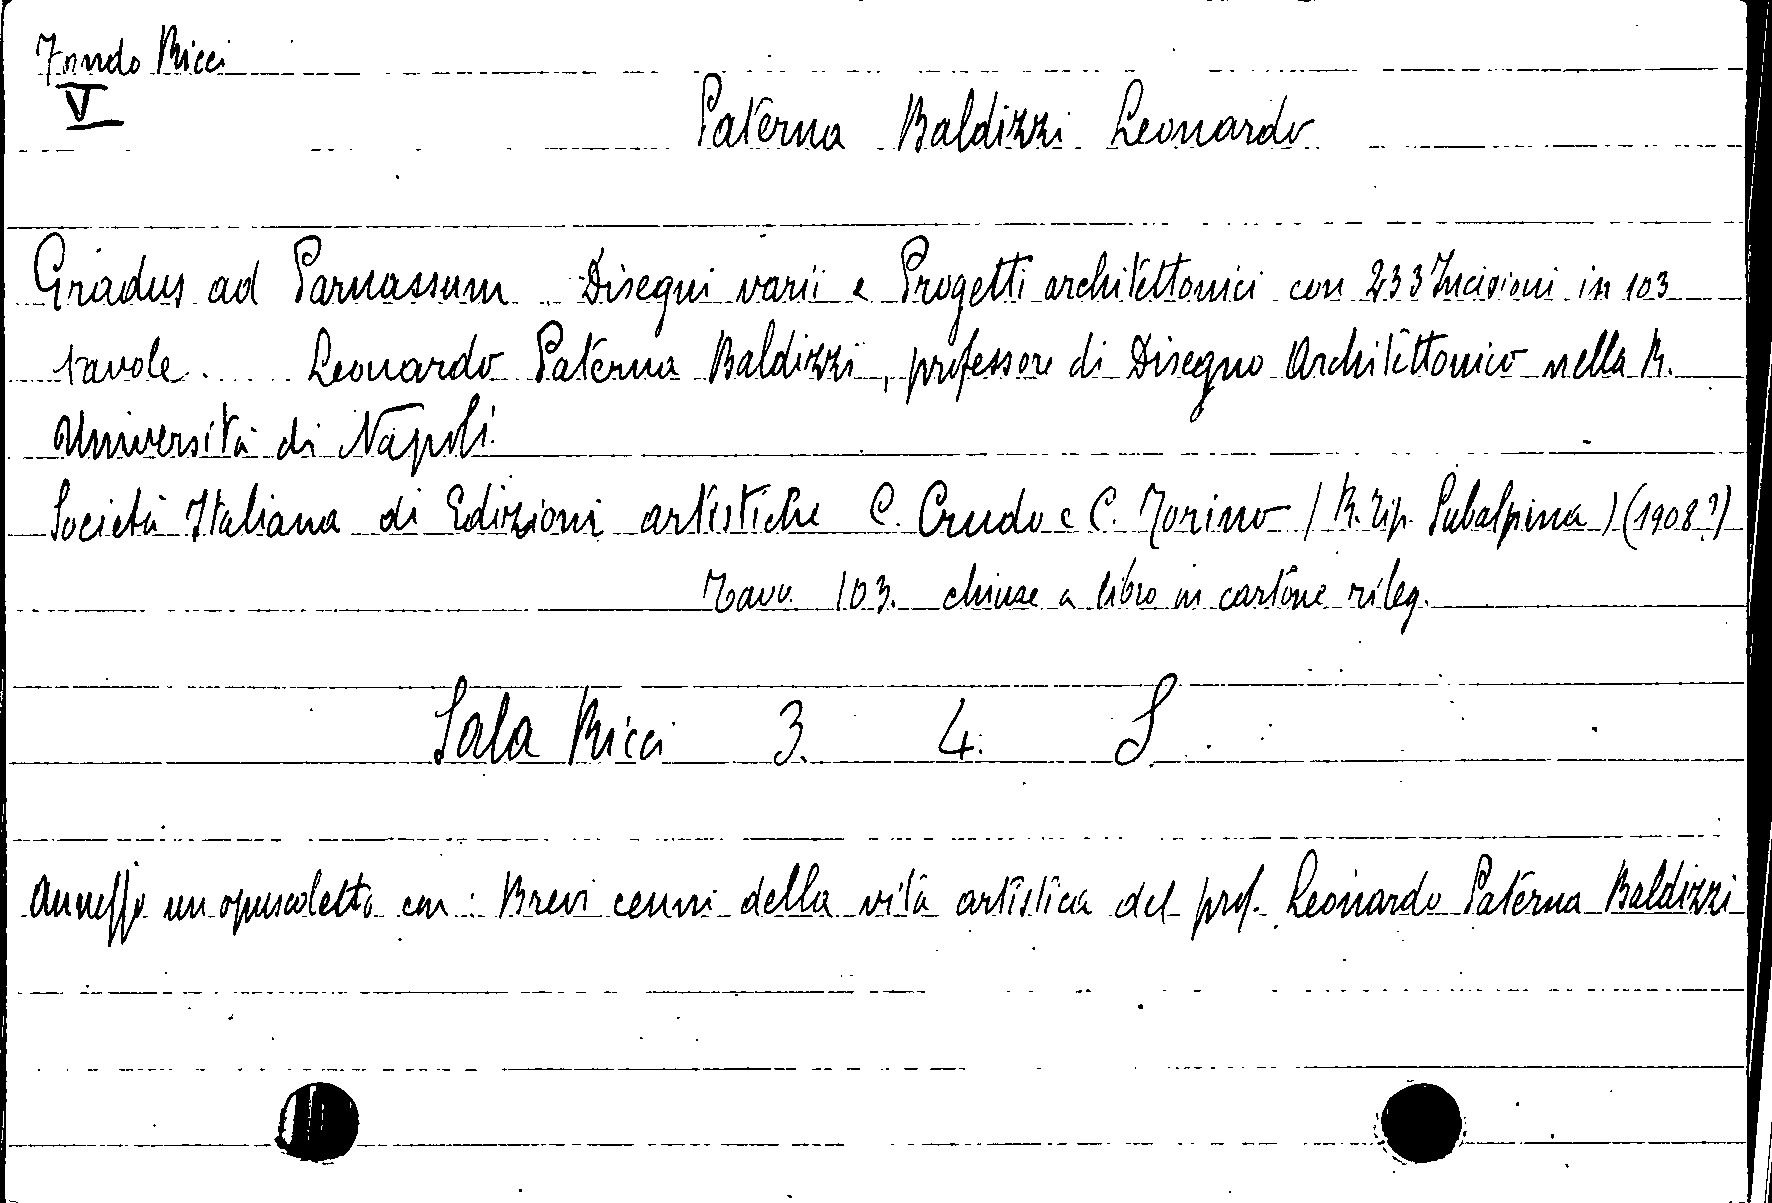 Fondo Ricci
V
Paterna Baldizzi Leonardo
Gradus ad Parnassum Disegni varii e Progetti architettonici con 233 Incisioni in 103
tavole. Leonardo Paterna Baldizzi, professore di Disegno Architettonico nella R.
Università di Napoli.
Società Italiana di Edizioni artistiche C. Crudo e C. Torino (R. Tip. Subalpina) (1908?)
Tavv. 103. chiuse a libro in cartone rileg.
Sala Ricci 3. 4. S.
Annesso un opuscoletto con: Brevi cenni della vita artistica del prof. Leonardo Paterna Baldizzi